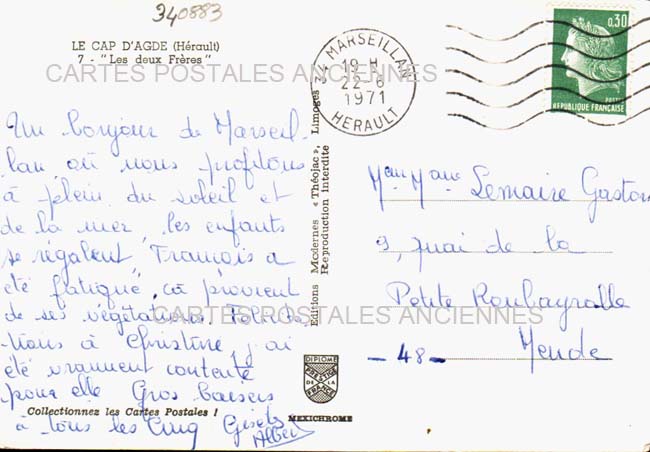 340883
LE CAP D'AGDE (Hérault)
7 - "Les deux Frères"
CARTES POSTALES ANCIENNES
34 MARSEILLAN
19-H
22-6
1971
HERAULT
0,30
POSTES
REPUBLIQUE FRANÇAISE
Un bonjour de Marseil
lan où nous profitons
à plein du soleil et
de la mer, les enfants
se régalent, François a
été fatigué, ça provient
de ses végétations. Félicita
tions à Christine, j'ai
été vraiment contente
pour elle Gros baisers
à tous les Cinq Gisèle
Albert
Collectionnez les Cartes Postales !
Editions Modernes « Théojac », Limoges
Reproduction interdite
DIPLOME
PRESTIGE
DE LA
FRANCE
MEXICHROME
Lemaire Gaston
9, quai de la
Petite Roubeyrolle
- 48 - Mende
CARTES POSTALES ANCIENNES